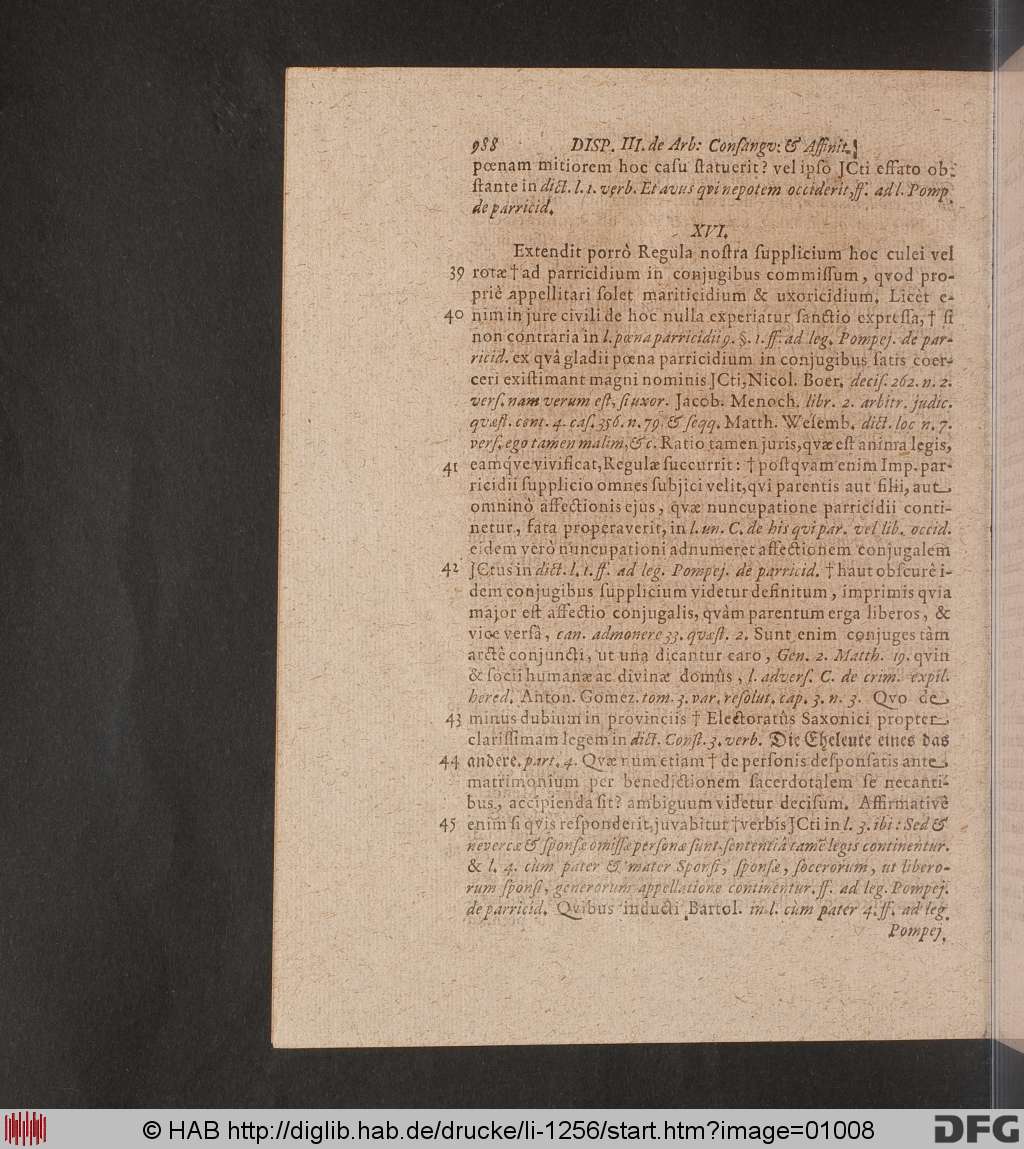 988 DISP. III. de Arb: Consangv: & Affinit.
pœnam mitiorem hoc casu statuerit? vel ipso JCti effato ob-
stante in dict. l. 1. verb. Et avus qvi nepotem occiderit, ff. ad l. Pomp.
de parricid.
XVI.
Extendit porrò Regula nostra supplicium hoc culei vel
39 rotæ † ad parricidium in conjugibus commissum, qvod pro-
priè appellitari solet mariticidium & uxoricidium. Licèt e-
40 nim in jure civili de hoc nulla experiatur sanctio expressa, † si
non contraria in l. pœna parricidii 9. §. 1. ff. ad leg. Pompej. de par-
ricid. ex qvâ gladii pœna parricidium in conjugibus satis coer-
ceri existimant magni nominis JCti, Nicol. Boer. decis. 262. n. 2.
vers. nam verum est, si uxor. Jacob. Menoch. libr. 2. arbitr. judic.
qvæst. cent. 4. cas. 356. n. 79. & seqq. Matth. Wesemb. dict. loc n. 7.
vers. ego tamen malim, &c. Ratio tamen juris, qvæ est anima legis,
41 eamqve vivificat, Regulæ succurrit: † postqvam enim Imp. par-
ricidii supplicio omnes subjici velit, qvi parentis aut filii, aut
omninò affectionis ejus, qvæ nuncupatione parricidii conti-
netur, fata properaverit, in l. un. C. de his qvi par. vel lib. occid.
eidem verò nuncupationi adnumeret affectionem conjugalem
42 JCtus in dict. l. 1. ff. ad leg. Pompej. de parricid. † haut obscurè i-
dem conjugibus supplicium videtur definitum, imprimis qvia
major est affectio conjugalis, qvàm parentum erga liberos, &
vice versâ, can. admonere 33. qvæst. 2. Sunt enim conjuges tàm
arctè conjuncti, ut una dicantur caro, Gen. 2. Matth. 19. qvin
& socii humanæ ac divinæ domûs, l. advers. C. de crim. expil.
hered. Anton. Gomez. tom. 3. var. resolut. cap. 3. n. 3. Qvo de
43 minus dubium in provinciis † Electoratûs Saxonici propter
clarissimam legem in dict. Const. 3. verb. Die Eheleute eines das
44 andere. part. 4. Qvæ num etiam † de personis desponsatis ante
matrimonium per benedictionem sacerdotalem se necanti-
bus, accipienda sit? ambiguum videtur decisum. Affirmativè
45 enim si qvis responderit, juvabitur † verbis JCti in l. 3. ibi: Sed &
nevercæ & sponsæ omissæ personæ sunt, sententiâ tamē legis continentur.
& l. 4. cùm pater & mater Sponsi, sponsæ, socerorum, ut libero-
rum sponsi, generorum appellatione continentur. ff. ad leg. Pompej.
de parricid. Qvibus inducti Bartol. in l. cùm pater 4. ff. ad leg.
Pompej.
© HAB http://diglib.hab.de/drucke/li-1256/start.htm?image=01008
DFG